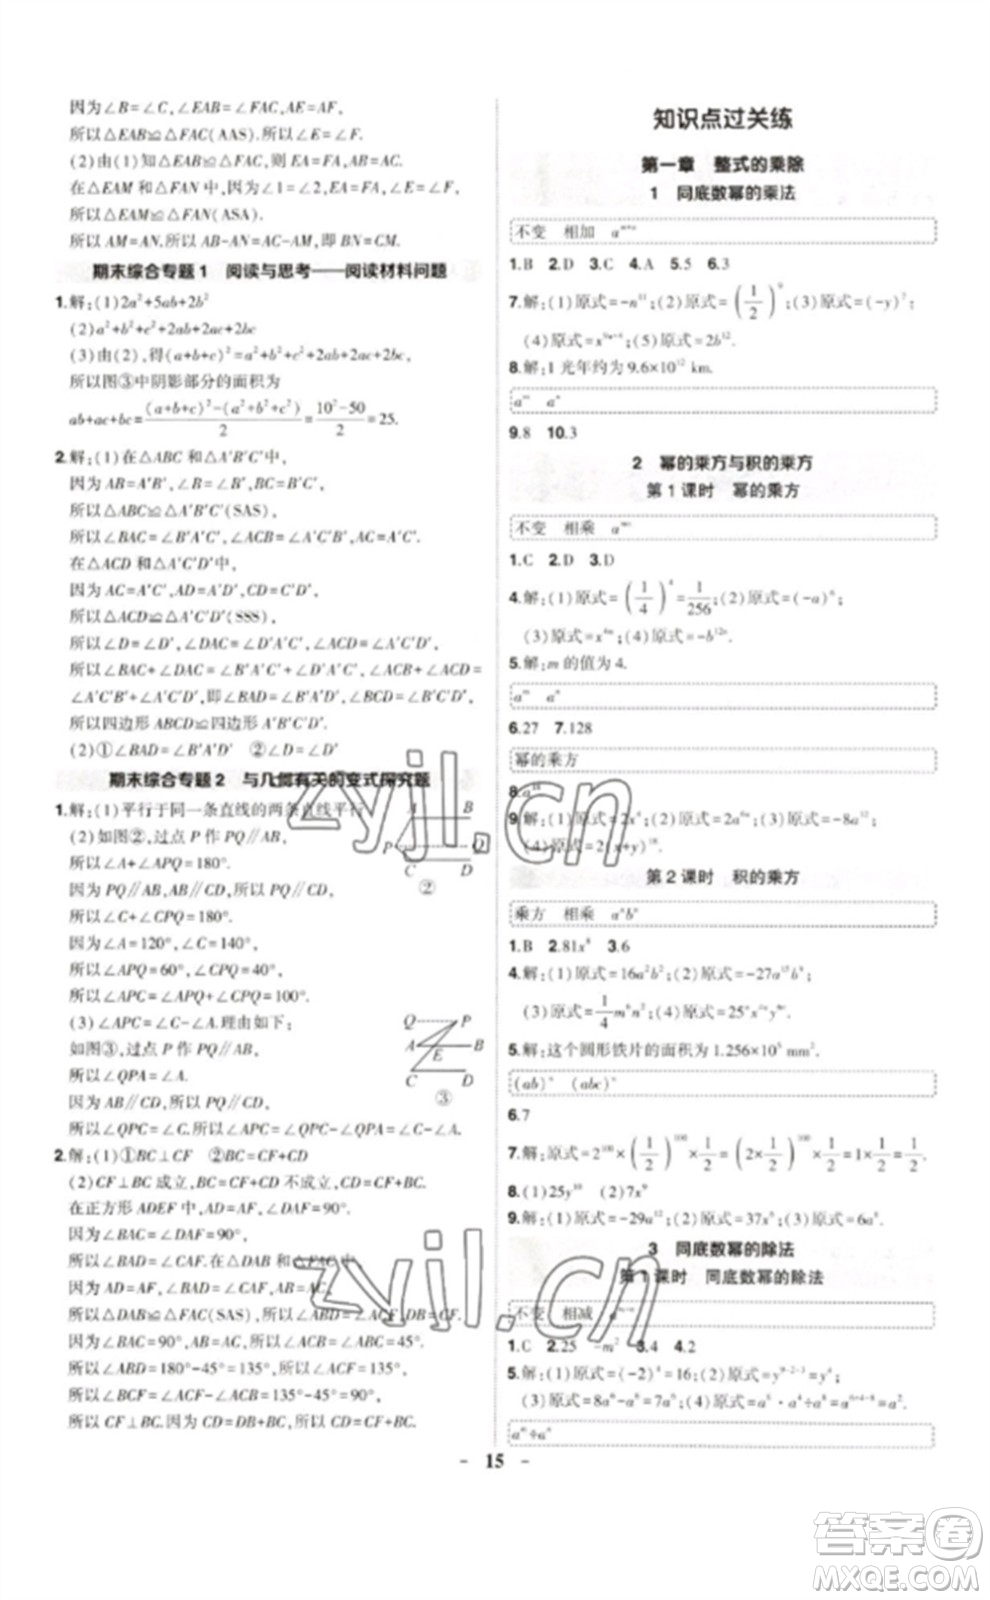 因为∠B=∠C,∠EAB=∠FAC,AE=AF,
所以△EAB≌△FAC(AAS).所以∠E=∠F.
(2)由(1)知△EAB≌△FAC,则EA=FA,AB=AC.
在△EAM和△FAN中,
因为∠E=∠F,EA=FA,∠1=∠2,
所以△EAM≌△FAN(ASA).
所以AM=AN.所以AC-AM=AB-AN,即BN=CM.
期末综合专题1 阅读与思考——阅读材料问题
1.解:(1)2a²+5ab+2b²
(2)a²+b²+c²+2ab+2ac+2bc
(3)由(2),得(a+b+c)²=a²+b²+c²+2ab+2ac+2bc.
所以图③中阴影部分的面积为
ab+ac+bc=((a+b+c)²-(a²+b²+c²))/2=(10²-50)/2=25.
2.解:(1)在△ABC和△A'B'C'中,
因为AB=A'B',∠B=∠B',BC=B'C',
所以△ABC≌△A'B'C'(SAS).
所以∠BAC=∠B'A'C',∠ACB=∠A'C'B',AC=A'C'.
在△ACD和△A'C'D'中,
因为AC=A'C',CD=C'D',AD=A'D',
所以△ACD≌△A'C'D'(SSS).
所以∠D=∠D',∠DAC=∠D'A'C',∠ACD=∠A'C'D'.
所以∠BAC+∠DAC=∠B'A'C'+∠D'A'C',∠ACB+∠ACD=
∠A'C'B'+∠A'C'D',即∠BAD=∠B'A'D',∠BCD=∠B'C'D'.
所以四边形ABCD≌四边形A'B'C'D'.
(2)①∠BAD=∠B'A'D' ②∠D=∠D'
期末综合专题2 与几何有关的变式探究题
1.解:(1)平行于同一条直线的两条直线平行
(2)如图②,过点P作PQ∥AB,
所以∠A+∠APQ=180°.
因为PQ∥AB,AB∥CD,所以PQ∥CD.
所以∠C+∠CPQ=180°.
因为∠A=120°,∠C=140°,
所以∠APQ=60°,∠CPQ=40°.
所以∠APC=∠APQ+∠CPQ=100°.
(3)∠APC=∠C-∠A.理由如下:
如图③,过点P作PQ∥AB,
所以∠QPA=∠A.
因为AB∥CD,所以PQ∥CD.
所以∠QPC=∠C.所以∠APC=∠QPC-∠QPA=∠C-∠A.
A B
P Q
C D
②
Q P
A E B
C D
③
2.解:(1)①BC⊥CF ②BC=CF+CD
(2)CF⊥BC成立,BC=CF+CD不成立.
在正方形ADEF中,AD=AF,∠DAF=90°.
因为∠BAC=∠DAF=90°,
所以∠BAD=∠CAF.在△DAB和△FAC中,
因为AD=AF,∠BAD=∠CAF,AB=AC,
所以△DAB≌△FAC(SAS).所以∠ABD=∠ACF,DB=CF.
因为∠BAC=90°,AB=AC,所以∠ACB=∠ABC=45°.
所以∠ABD=180°-45°=135°,所以∠ACF=135°,
所以∠BCF=∠ACF-∠ACB=135°-45°=90°.
所以CF⊥BC.因为CD=DB+BC,DB=CF,所以CD=CF+BC.
知识点过关练
第一章 整式的乘除
1 同底数幂的乘法
不变 相加
1.B 2.D 3.D 4.A 5.5 6.3
7.解:(1)原式=-n¹¹;(2)原式=(1/2)⁹;(3)原式=(-y)⁷;
8.解:1光年约为9.6×10¹² km.
aᵐ aⁿ
9.8 10.3
2 幂的乘方与积的乘方
第1课时 幂的乘方
不变 相乘
1.C 2.D 3.D
4.解:(1)原式=(1/4)⁴=1/256;(2)原式=(-a)⁶;
(3)原式=x⁴ᵐ;(4)原式=-b¹²ⁿ.
5.解:m的值为4.
aᵐ aⁿ
6.27 7.128
幂的乘方
(4)原式=2(x+y)¹⁸.
第2课时 积的乘方
乘方 相乘 aⁿbⁿ
1.B 2.81x⁸ 3.6
4.解:(1)原式=16a²b²;(2)原式=-27a¹⁵b⁹;
5.解:这个圆形铁片的面积为1.256×10⁵ mm².
(ab)ⁿ (abc)ⁿ
6.7
7.解:原式=2¹⁰⁰×(1/2)¹⁰⁰×1/2=(2×1/2)¹⁰⁰×1/2=1×1/2=1/2.
8.(1)25y¹⁰ (2)7x⁹
9.解:(1)原式=-29a¹²;(2)原式=37x⁶;(3)原式=6a⁶.
3 同底数幂的除法
第1课时 同底数幂的除法
不变 相减
1.C 2.25 -m² 3.4 4.2
5.解:(1)原式=(-2)⁴=16;(2)原式=x⁹⁻²⁻³=x⁴;
aᵐ÷aⁿ
- 15 -
zyjl.cn
zyjl.cn
答案卷
MXQE.COM